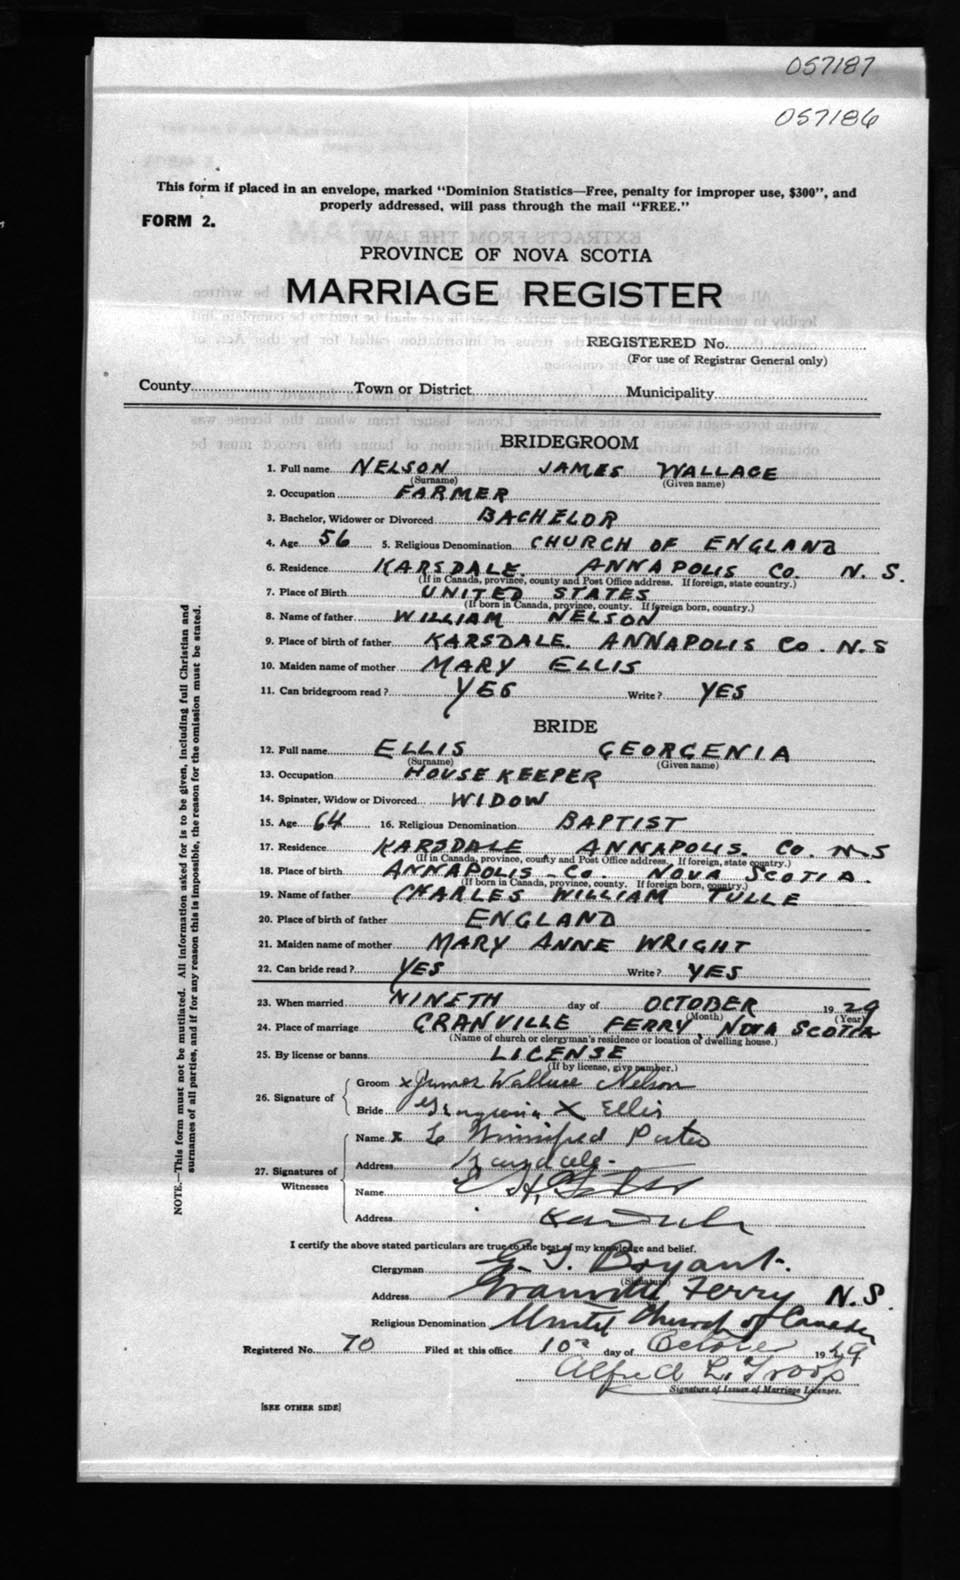 057187
057186
This form if placed in an envelope, marked "Dominion Statistics—Free, penalty for improper use, $300", and
properly addressed, will pass through the mail "FREE."
FORM 2.
PROVINCE OF NOVA SCOTIA
MARRIAGE REGISTER
REGISTERED No.
(For use of Registrar General only)
County Town or District Municipality
BRIDEGROOM
1. Full name NELSON JAMES WALLACE
(Surname) (Given name)
2. Occupation FARMER
3. Bachelor, Widower or Divorced BACHELOR
4. Age 56 5. Religious Denomination CHURCH OF ENGLAND
6. Residence KARSDALE. ANNAPOLIS CO. N. S.
(If in Canada, province, county and Post Office address. If foreign, state country.)
7. Place of Birth UNITED STATES
(If born in Canada, province, county. If foreign born, country.)
8. Name of father WILLIAM NELSON
9. Place of birth of father KARSDALE. ANNAPOLIS CO. N. S
10. Maiden name of mother MARY ELLIS
11. Can bridegroom read? YES Write? YES
BRIDE
12. Full name ELLIS GEORGENIA
(Surname) (Given name)
13. Occupation HOUSE KEEPER
14. Spinster, Widow or Divorced WIDOW
15. Age 64 16. Religious Denomination BAPTIST
17. Residence KARSDALE ANNAPOLIS. CO. N S
(If in Canada, province, county and Post Office address. If foreign, state country.)
18. Place of birth ANNAPOLIS - CO. NOVA SCOTIA.
(If born in Canada, province, county. If foreign born, country.)
19. Name of father CHARLES WILLIAM TULLE
20. Place of birth of father ENGLAND
21. Maiden name of mother MARY ANNE WRIGHT
22. Can bride read? YES Write? YES
23. When married NINETH day of OCTOBER 19 29
(Month) (Year)
24. Place of marriage GRANVILLE FERRY, NOVA SCOTIA
(Name of church or clergyman's residence or location of dwelling house.)
25. By license or banns LICENSE
(If by license, give number.)
26. Signature of
Groom x James Wallace Nelson
Bride Georgenia X Ellis
27. Signatures of Witnesses
Name x L Winnifred Porter
Address Karsdale.
Name
Address Karsdale
I certify the above stated particulars are true to the best of my knowledge and belief.
Clergyman G. J. Bryant.
(Signature)
Address Granville Ferry N. S.
Religious Denomination United Church of Canada
Registered No. 70 Filed at this office 10 day of October 19 29
Alfred L. Troop
Signature of Issuer of Marriage Licenses.
[SEE OTHER SIDE]
NOTE.—This form must not be mutilated. All information asked for is to be given, including full Christian and
surnames of all parties, and if for any reason this is impossible, the reason for the omission must be stated.